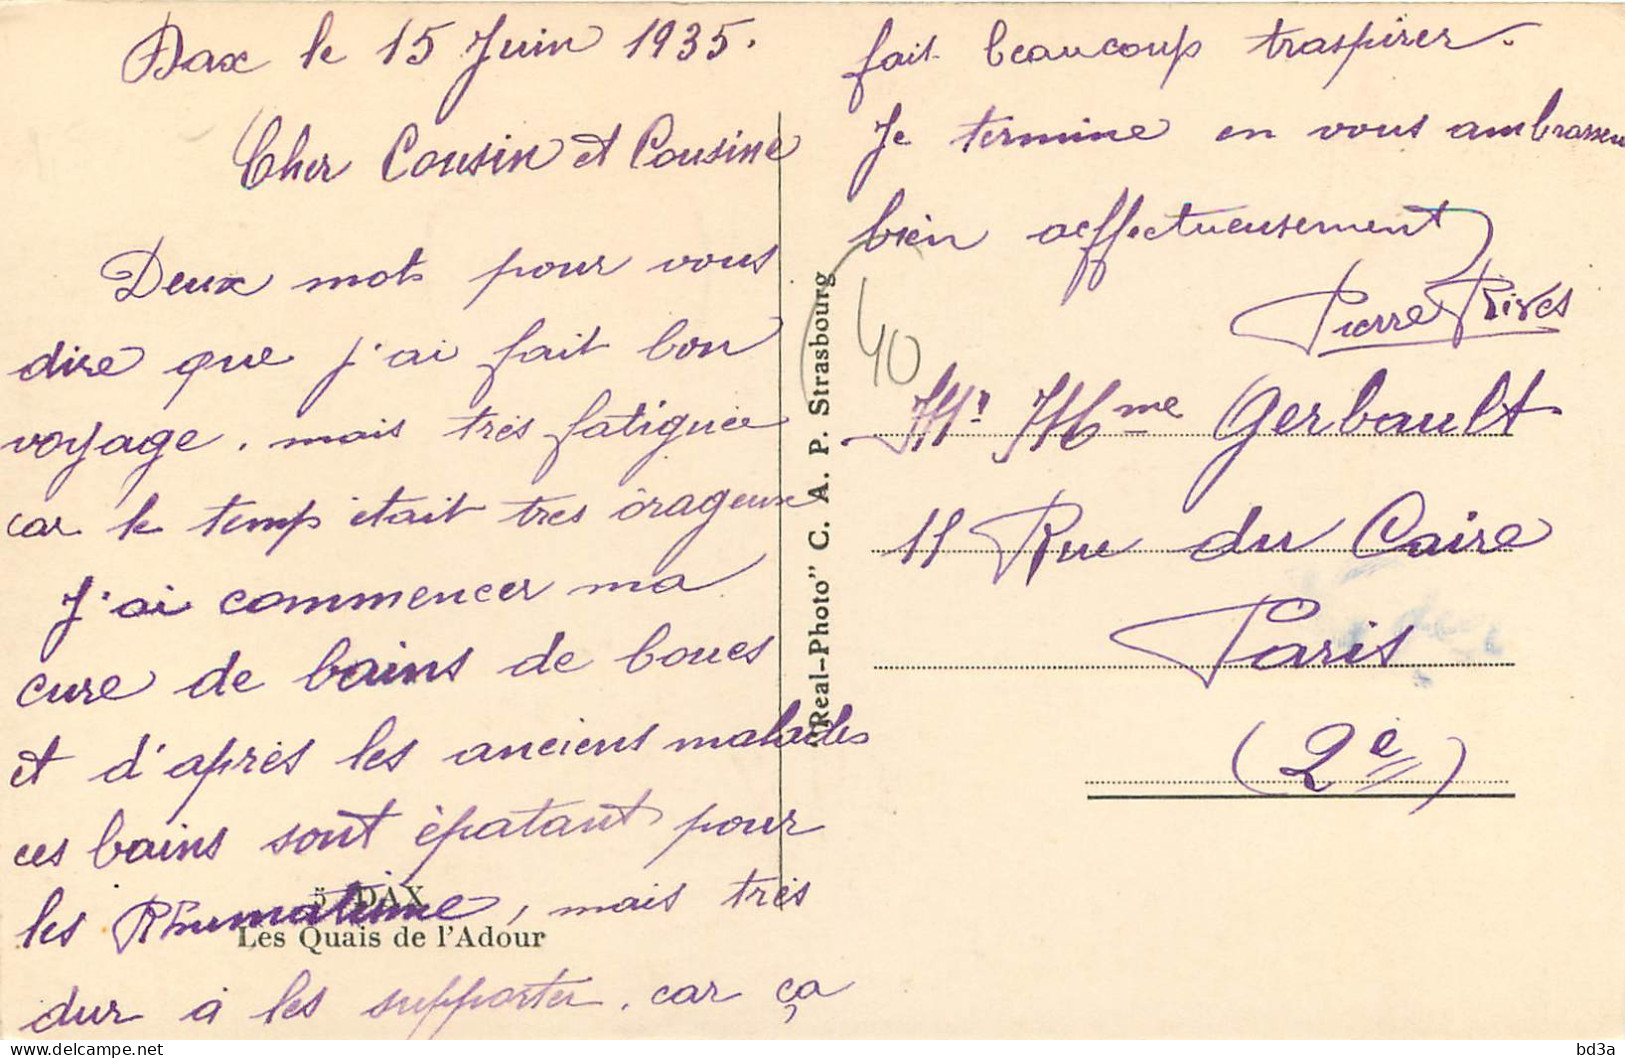 Dax le 15 Juin 1935.
Cher Cousin et Cousine
Deux mots pour vous
dire que j'ai fait bon
voyage. mais très fatiguée
car le temp était tres orageux
J'ai commencer ma
cure de bains de boues
et d'après les anciens malades
ces bains sont épatant pour
les Rhumatisme, mais très
dur à les supporter. car ça
fait beaucoup traspirer.
Je termine en vous ambrassen
bien affectueusement
Pierre Rives
5 DAX
Les Quais de l'Adour
"Real-Photo" C. A. P. Strasbourg
40
Mr Mme Gerbault
11 Rue du Caire
Paris
(2e)
bd3a